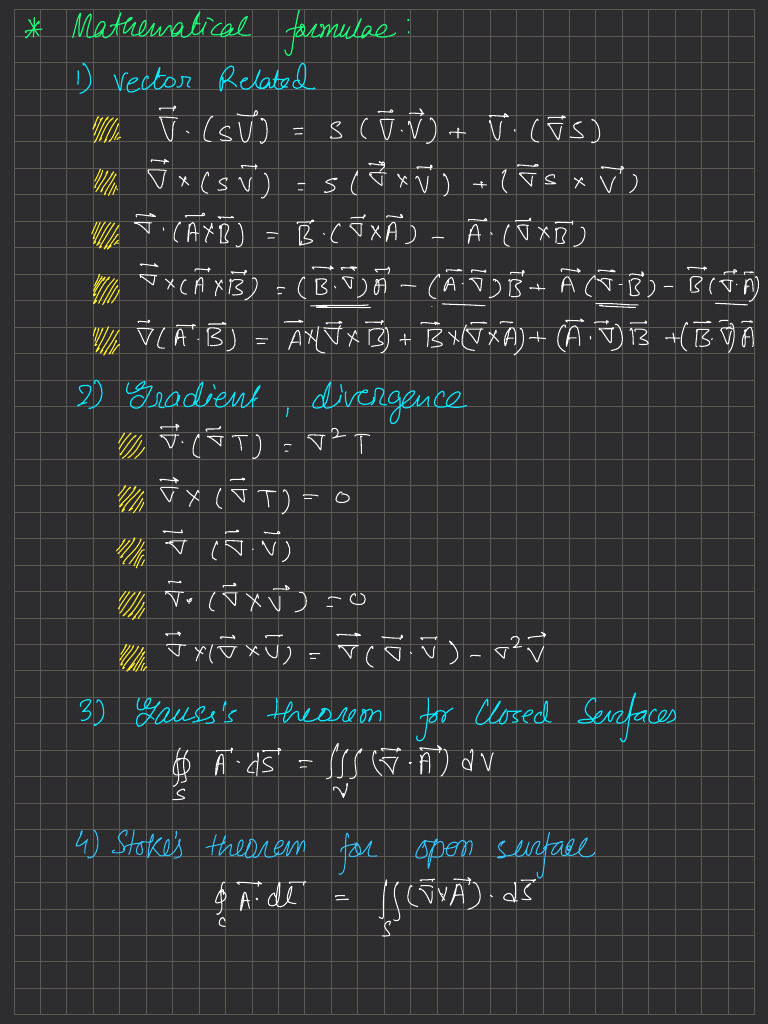 * Mathematical formulae :
1) Vector Related
∇⃗·(sV⃗) = s(∇⃗·V⃗) + V⃗·(∇⃗s)
∇⃗×(sV⃗) = s(∇⃗×V⃗) + (∇⃗s × V⃗)
∇⃗·(A⃗×B⃗) = B⃗·(∇⃗×A⃗) − A⃗·(∇⃗×B⃗)
∇⃗×(A⃗×B⃗) = (B⃗·∇⃗)A⃗ − (A⃗·∇⃗)B⃗ + A⃗(∇⃗·B⃗) − B⃗(∇⃗·A⃗)
∇⃗(A⃗·B⃗) = A⃗×(∇⃗×B⃗) + B⃗×(∇⃗×A⃗) + (A⃗·∇⃗)B⃗ + (B⃗·∇⃗)A⃗
2) Gradient, divergence
∇⃗·(∇⃗T) = ∇²T
∇⃗×(∇⃗T) = 0
∇⃗ (∇⃗·V⃗)
∇⃗·(∇⃗×V⃗) = 0
∇⃗×(∇⃗×V⃗) = ∇⃗(∇⃗·V⃗) − ∇²V⃗
3) Gauss's theorem for Closed Surfaces
∯_S A⃗·dS⃗ = ∭_V (∇⃗·A⃗) dV
4) Stoke's theorem for open surface
∮_C A⃗·dl⃗ = ∬_S (∇⃗×A⃗)·dS⃗